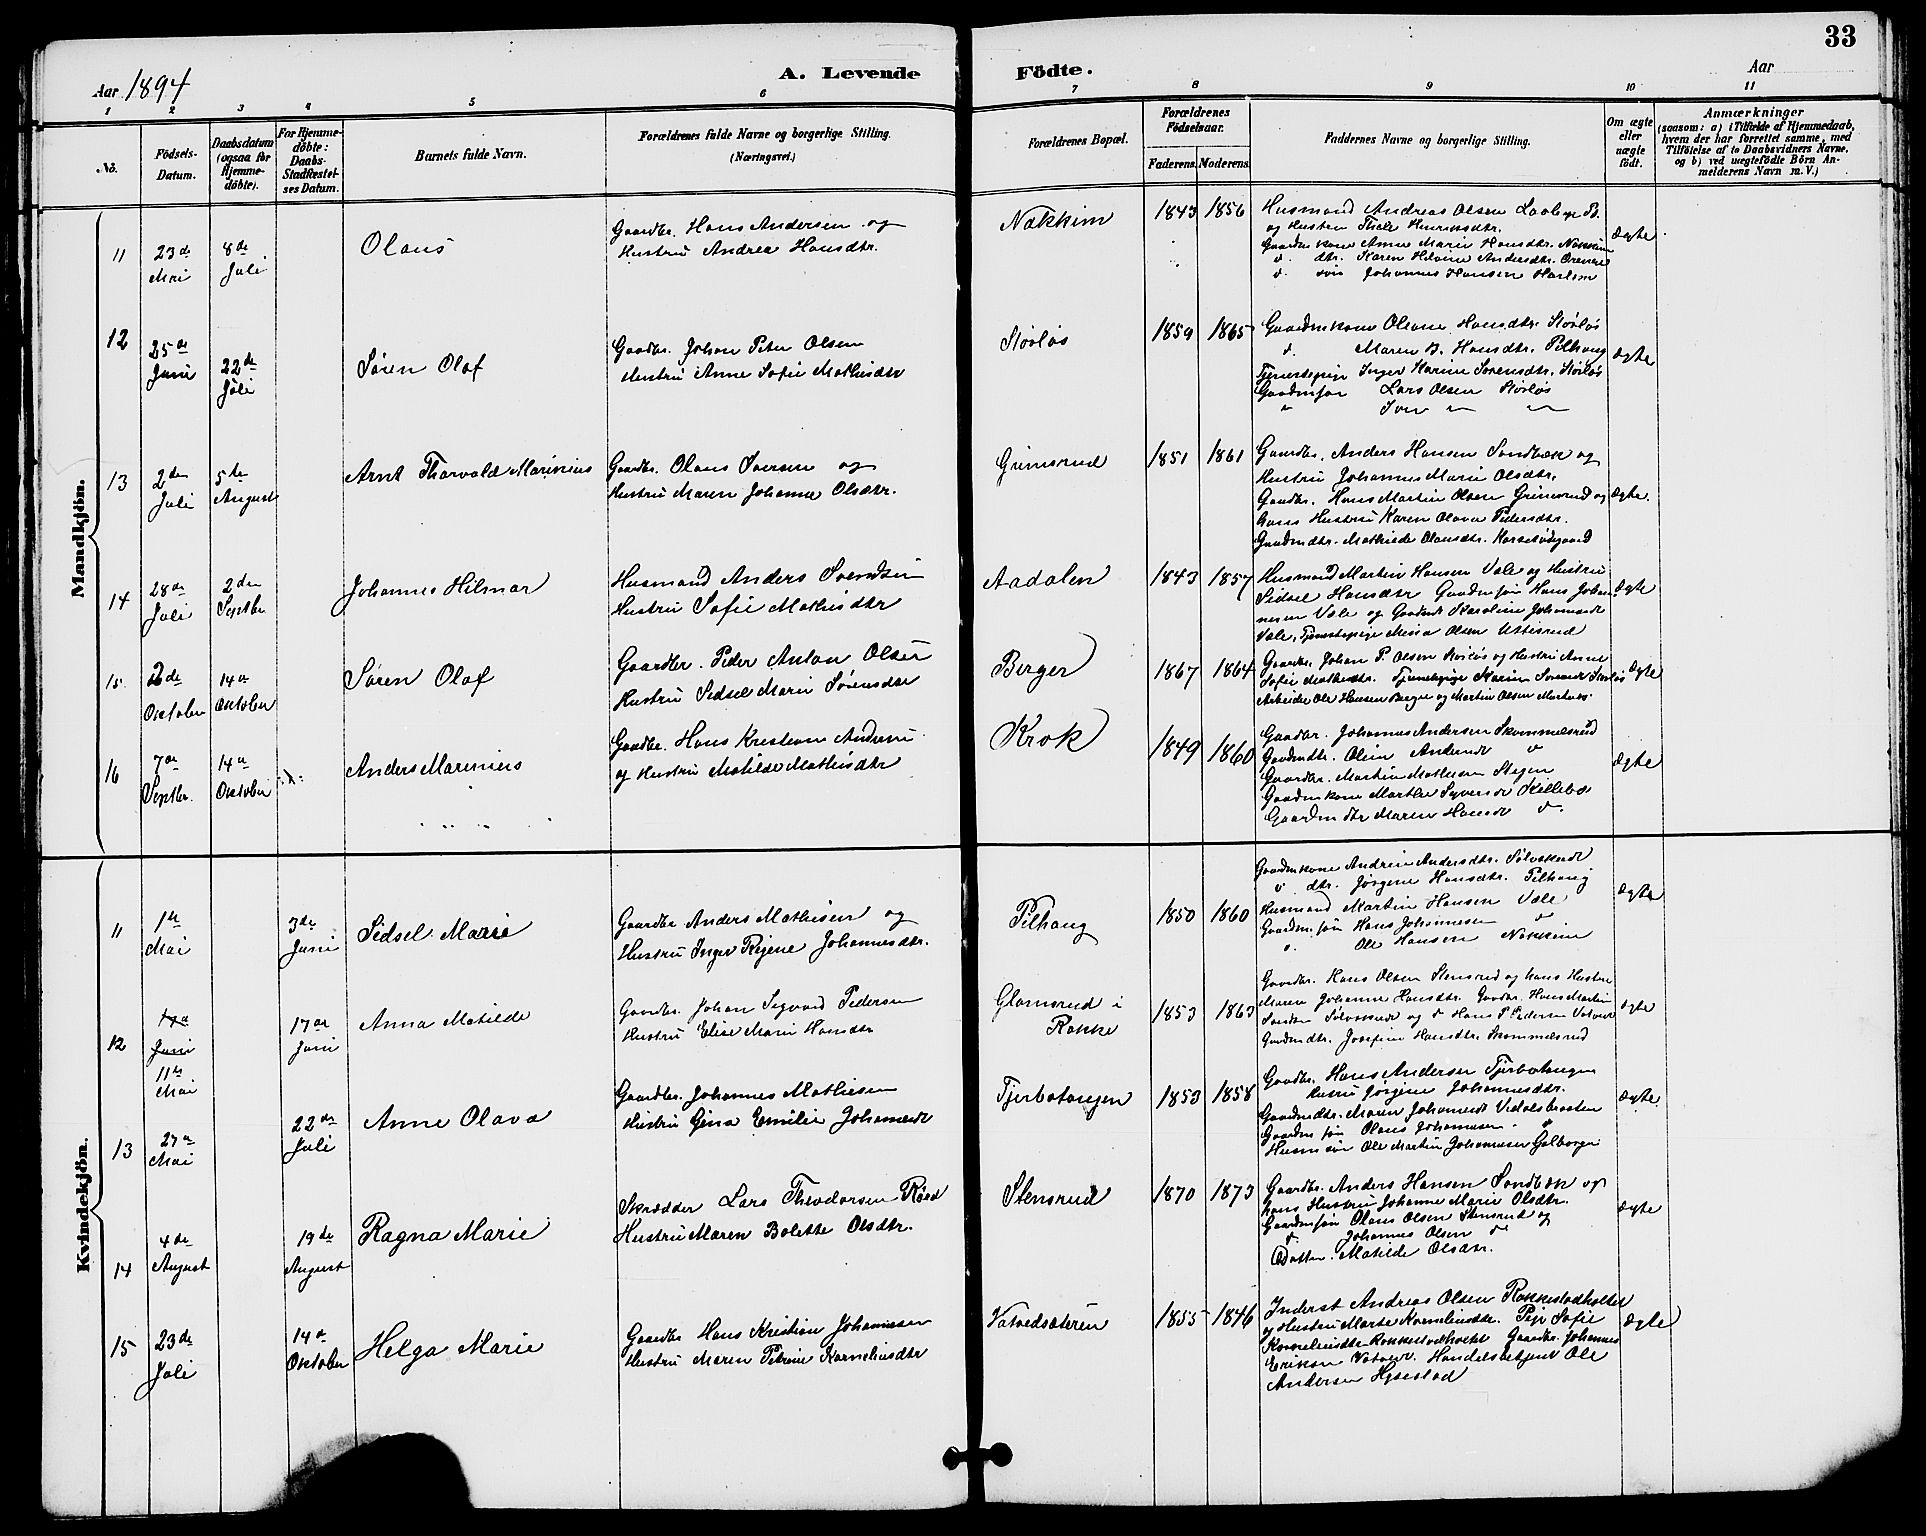 33
Aar 1894
A. Levende Födte.
Aar
1 2 3 4 5 6 7 8 9 10 11
No.
Födsels-Datum.
Daabsdatum (ogsaa for Hjemmedöbte).
For Hjemmedöbte: Daabs-Stadfæstelses Datum.
Barnets fulde Navn.
Forældrenes fulde Navne og borgerlige Stilling. (Næringsvei.)
Forældrenes Bopæl.
Forældrenes Födselsaar.
Faderens. Moderens.
Faddernes Navne og borgerlige Stilling.
Om ægte eller uægte födt.
Anmærkninger
(saasom: a) i Tilfælde af Hjemmedaab, hvem der har forrettet samme, med Tilföielse af to Daabsvidners Navne, og b) ved uægtefödte Börn Anmelderens Navn m. V.)
Mandkjön.
11 23de Mai 8de Juli Olaus
Gaardbr. Hans Andersen og
Hustru Andrea Hansdtr.
Nakkim 1843 1856
Husmand Andreas Olsen
og Hustru Thale Henriksdtr.
Gaardmkone Anne Marie Hansdtr. Nakkim
d. dtr. Karen Helvine Andersdtr.
d. søn Johannes Hansen
Ægte
12 25de Juni 22de Juli Søren Olaf
Gaardbr. Johan Peter Olsen
Hustru Anne Sofie Mathisdtr
Storløs 1859 1865
Gaardmkone Oleane Hansdtr. Storløs
d. Maren B. Hansdtr. Pilhaug
Tjenestepige Inger Karine Sørensdtr. Storløs
Gaardmsøn Lars Olsen Storløs
" Iver " "
Ægte
13 2den Juli 5te August Arnt Thorvald Marinius
Gaardbr. Olaus Iversen og
Hustru Maren Johanne Olsdtr.
Grimsrud 1851 1861
Gaardbr. Anders Hansen Sandbæk og
Hustru Johannes Marie Olsdtr.
Gaardbr. Hans Martin Olsen Grimsrud og
hans Hustru Karen Olava Pedersdtr.
Gaardmdtr. Mathilde Olausdtr.
Ægte.
14 28de Juli 2den Septbr Johannes Hilmar
Husmand Anders Svendsen
Hustru Sofie Mathisdtr
Aadalen 1843 1857
Husmand Martin Hansen Vale og Hustru
Sidsel Hansdtr Gaardmsøn Hans Johan-
nesen Vale og Gaardmdt Karoline Johannesdt
Vale, Tjenestepige Mina Olsen
Ægte
15 2de Oktober 14de Oktober Søren Olaf
Gaardbr. Peder Anton Olsen
Hustru Sedsel Marie Sørensdtr
Berger 1867 1864
Gaardbr. Johan P. Olsen Storløs og Hustru Anne
Sofie Mathisdtr. Tjenestepige Karine Storløs
Arbeider Ole Hansen Berger og Martin Olsen
Ægte
16 7de Septbr. 14de Oktober Anders Marinius
Gaardbr. Hans Kristian Andersen
og Hustru Matilde Mathisdtr
Krok 1849 1860
Gaardbr. Johannes Andersen Skammelsrud
Gaardmdtr. Oline Andersdt d
Gaardbr. Martin Mathisen Stegen
Gaardmkone Marthe Syversdt Killebo
Gaardmdtr Maren Hansdt d.
Ægte
Kvindekjön.
11 1te Mai 3de Juni Sidsel Marie
Gaardbr Anders Mathisen og
Hustru Inger Regine Johannesdtr.
Pilhaug 1850 1860
Gaardmkone Andrine Andersdtr.
d dtr. Jørgine Hansdtr. Pilhaug
Husmand Martin Hansen Vale
Gaardm.søn Hans Johannesen d
d. Ole Hansen Nakkim
Ægte
12 17de Juni 11te Mai 17de Juni Anna Matilde
Gaardbr. Johan Sigvard Pedersen
Hustru Elise Marie Hansdtr
Glamsrud i
Rakke
1853 1863
Gaardbr. Hans Olsen Stensrud og hans Hustru
Maren Johanne Hansdtr. Gaardbr. Hans Martin
og d Hans P. Pedersen
Gaardmdtr. Josefine Hansdtr. Skammelsrud
Ægte
13 27de Mai 22de Juli Anne Olava
Gaardbr. Johannes Mathisen
Hustru Gina Emilie Johannesdt
Tjerbotangen 1853 1858
Gaardbr. Hans Andersen Tjerbotangen
Hustru Jørgine Johannesdtr.
Gaardmdtr. Maren Johannesdt
Gaardmsøn Olaus Johannesen d
Husmsøn Ole Martin Johannesen
Ægte.
14 4de August 19de August Ragna Marie
Skrædder Lars Theodorsen Røed
Hustru Maren Bolette Olsdtr.
Stensrud 1870 1873
Gaardbr. Anders Hansen Sandbæk og
hans Hustru Johanne Marie Olsdtr.
Gaardmsøn Olaus Olsen Stensrud og
d. Johannes Olsen d
Datter. Matilde Olsdtr.
Ægte
15 23de Juli 14de Oktober Helga Marie
Gaardbr Hans Kristian Johannesen
Hustru Maren Petrine Korneliusdtr
Vatvedsæteren 1855 1846
Inderst Andreas Olsen Rakkestadholtet
og Hustru Marte Korneliusdtr. Pige Sofie
Korneliusdtr Rakkestadholtet Gaardbr. Johannes
Eriksen Vatvet. Handelsbetjent Ole
Andersen
Ægte